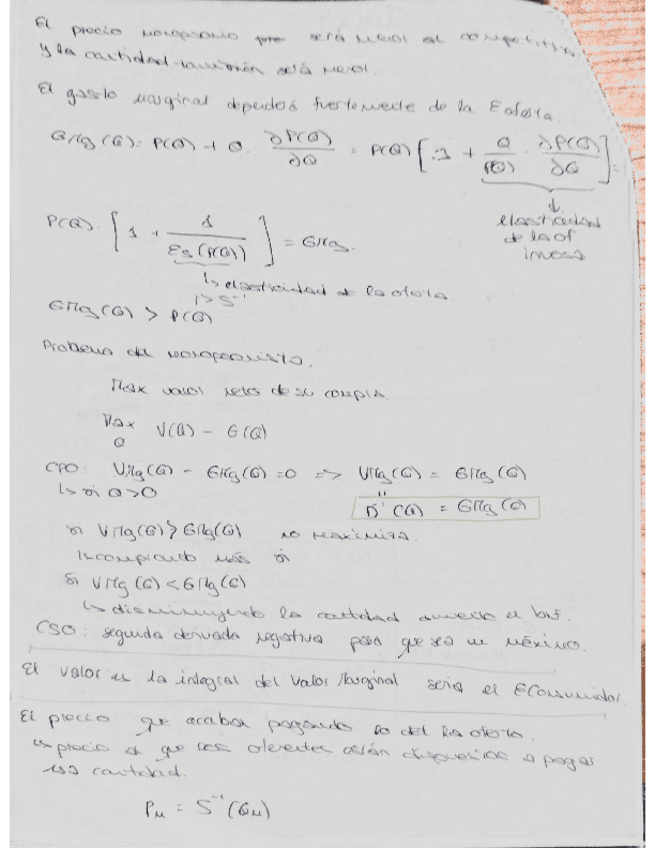 El precio monopsonio será menor al competitivo
y la cantidad también será menor.
El gasto marginal dependerá fuertemente de la E oferta.
GMg(Q) = P(Q) + Q · ∂P(Q)/∂Q = P(Q) [1 + Q/P(Q) · ∂P(Q)/∂Q] =
↓ elasticidad
de la of.
inversa
P(Q) · [1 + 1/Es(P(Q))] = GMg.
↳ elasticidad de la oferta
↳ S⁻¹
GMg(Q) > P(Q)
Problema del monopsonista.
Max valor neto de su compra.
Max V(Q) - G(Q)
Q
CPO: VMg(Q) - GMg(Q) = 0 => VMg(Q) = GMg(Q)
↳ si Q > 0
D⁻¹(Q) = GMg(Q)
si VMg(Q) > GMg(Q) no maximiza.
↳ comprando más sí
Si VMg(Q) < GMg(Q)
↳ disminuyendo la cantidad aumento el bnf.
CSO: segunda derivada negativa para que sea un máximo.
El valor es la integral del valor Marginal sería el EConsumidor.
El precio que acaba pagando es del la oferta.
↳ precio al que los oferentes están dispuestos a pagar
esa cantidad.
PM = S⁻¹(QM)